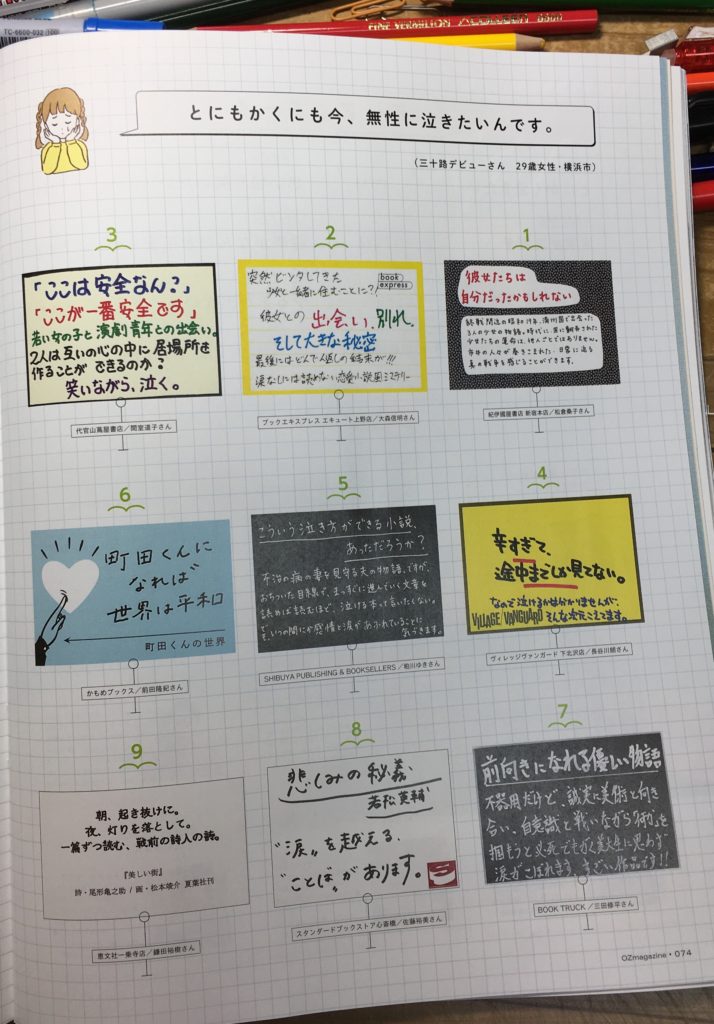 TC-6600-032
FINE VERMILION
とにもかくにも今、無性に泣きたいんです。
(三十路デビューさん 29歳女性・横浜市)
1
彼女たちは
自分だったかもしれない
終戦間近の昭和19年、満州国で出会った
3人の少女の物語。時代に、常に翻弄された
少女たちの運命は、他人ごとではありません。
市井の人々が巻きこまれた、日常に迫る
真の戦争を感じることができます。
紀伊國屋書店 新宿本店/松倉桑子さん
2
突然ビンタしてきた
少女と一緒に住むことに?!
book
express
彼女との出会い、別れ、
そして大きな秘密
最後にはどんでん返しの結末が!!!
涙なしには読めない恋愛小説風ミステリー
ブックエキスプレス エキュート上野店/大森信明さん
3
「ここは安全なん?」
「ここが一番安全です」
若い女の子と演劇青年との出会い。
2人は互いの心の中に居場所を
作ることができるのか?
笑いながら、泣く。
代官山蔦屋書店/間室道子さん
4
辛すぎて、
途中までしか見てない。
なので泣けるかは分かりませんが、
VILLAGE/VANGUARD そんな次元こえてます。
ヴィレッジヴァンガード 下北沢店/長谷川朗さん
5
こういう泣き方ができる小説、
あっただろうか?
不治の病の妻を見守る夫の物語、ですが、
おちついた目線で、まっすぐに進んでいく文章を
読めば読むほど、泣ける本って言いたくない。
といつの間にか感情と涙があふれていることに
気づきます。
SHIBUYA PUBLISHING & BOOKSELLERS/粕川ゆきさん
6
町田くんに
なれば
世界は平和
町田くんの世界
かもめブックス/前田隆紀さん
7
前向きになれる優しい物語
不器用だけど、誠実に美術と向き
合い、自意識と戦いながら何かを
掴もうと必死でもがく美大生に思わず
涙がこぼれます。すごい作品です!!
BOOK TRUCK/三田修平さん
8
悲しみの秘義
若松英輔
"涙"を越える、
"ことば"があります。
スタンダードブックストア心斎橋/佐藤裕美さん
9
朝、起き抜けに。
夜、灯りを落として。
一篇ずつ読む、戦前の詩人の詩。
『美しい街』
詩・尾形亀之助 / 画・松本竣介 夏葉社刊
恵文社一乗寺店/鎌田裕樹さん
OZmagazine・074